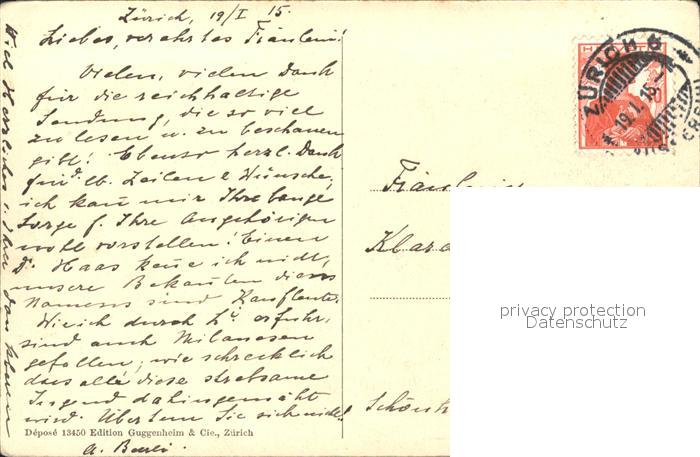 Zürich, 19/I 15.
Liebes, verehrtes Fräulein!
Vielen, vielen Dank
für die reichhaltige
Sendung, die so viel
zu lesen u. zu beschauen
gibt! Ebenso herzl. Dank
für d. lb. Zeilen & Wünsche,
ich kann mir Ihre bange
Sorge f. Ihre Angehörigen
wohl vorstellen! Einen
Dr. Haas kenne ich nicht,
unsere Bekannten dieses
Namens sind Kaufleute.
Wie ich durch erfuhr,
sind auch Milanesen
gefallen; wie schrecklich
dass alle diese strebsame
Jugend dahingemäht
wird. Übertun Sie sich nicht!
Déposé 13450 Edition Guggenheim & Cie., Zürich
A.
Viel Herzliches v. Ihrer
Fräulein
Klara
Schönt
ZÜRICH 6
19.I.15
privacy protection
Datenschutz